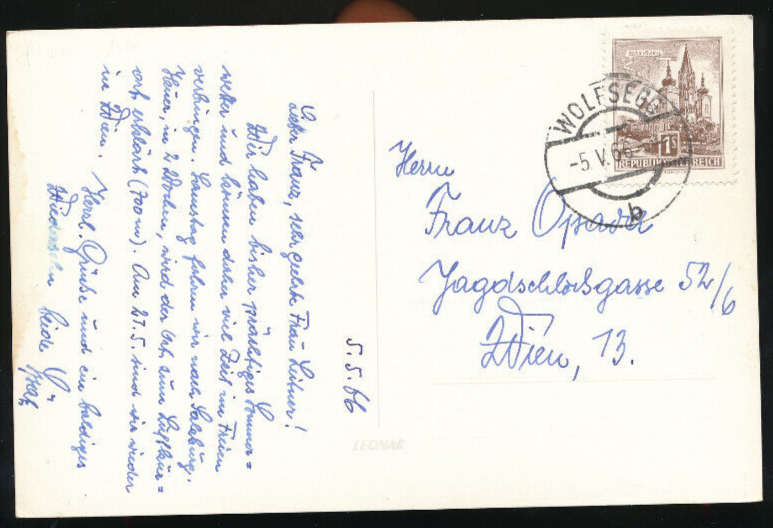 Lieber Franz, sehr geehrte Frau Leitner!
Wir haben bisher prächtiges Sommer=
wetter und können daher viel Zeit im Freien
verbringen. Samstag fahren wir nach Salzburg.
Heuer, in 2 Wochen, wird der Ort zum Luftkur=
ort erklärt (700 m). Am 27.5. sind wir wieder
in Wien. Herzl. Grüße und ein baldiges
Wiedersehn beide
5.5.66
LEONAR
Herrn
Franz
Jagdschloßgasse 52/6
Wien, 13.
WOLFSEGG
-5.V.66
b
MARIAZELL
1S
REPUBLIK ÖSTERREICH